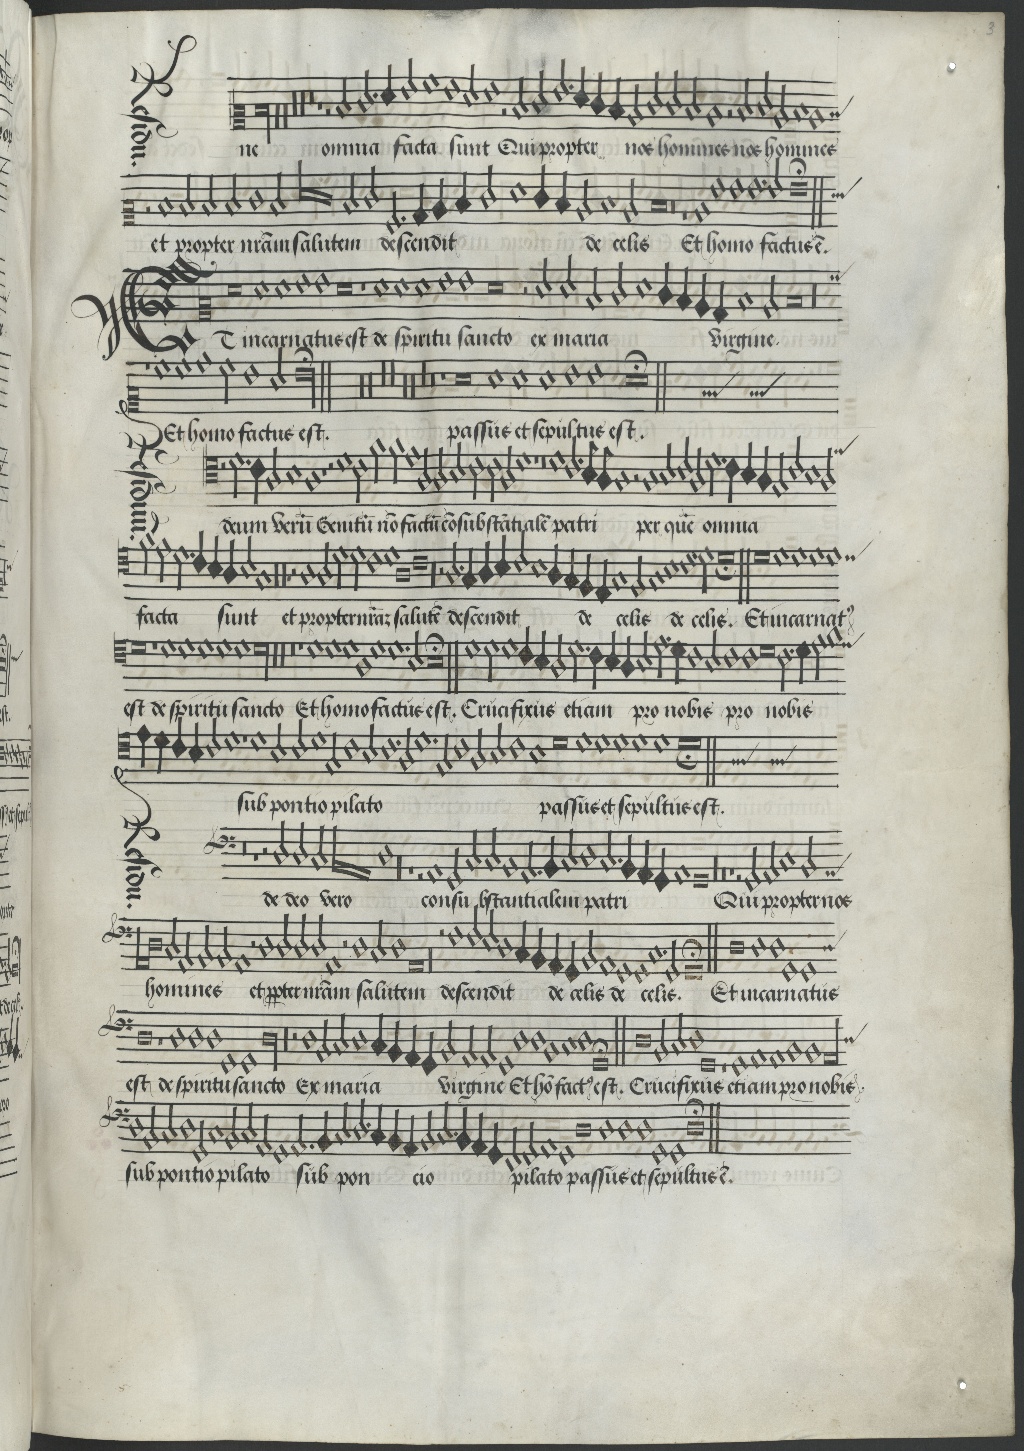 3
Residuũ.
ne omnia facta sunt Qui propter nos homines nos homines
et propter nr̃am salutem descendit de celis Et homo factus ẽ.
ET incarnatus est de spiritu sancto ex maria virgine.
Et homo factus est. passus et sepultus est.
Residuum.
deum verũ Genitũ nõ factũ cõsubstãtialẽ patri per quẽ omnia
facta sunt et propter nr̃am salutẽ descendit de celis de celis. Et incarnatꝰ
est de spiritu sancto Et homo factus est. Crucifixus etiam pro nobis pro nobis
sub pontio pilato passus et sepultus est.
Residuũ.
de deo vero consubstantialem patri Qui propter nos
homines et ꝓpter nr̃am salutem descendit de celis de celis. Et incarnatus
est de spiritu sancto Ex maria virgine Et hõ factꝰ est. Crucifixus etiam pro nobis.
sub pontio pilato sub poncio pilato passus et sepultus ẽ.